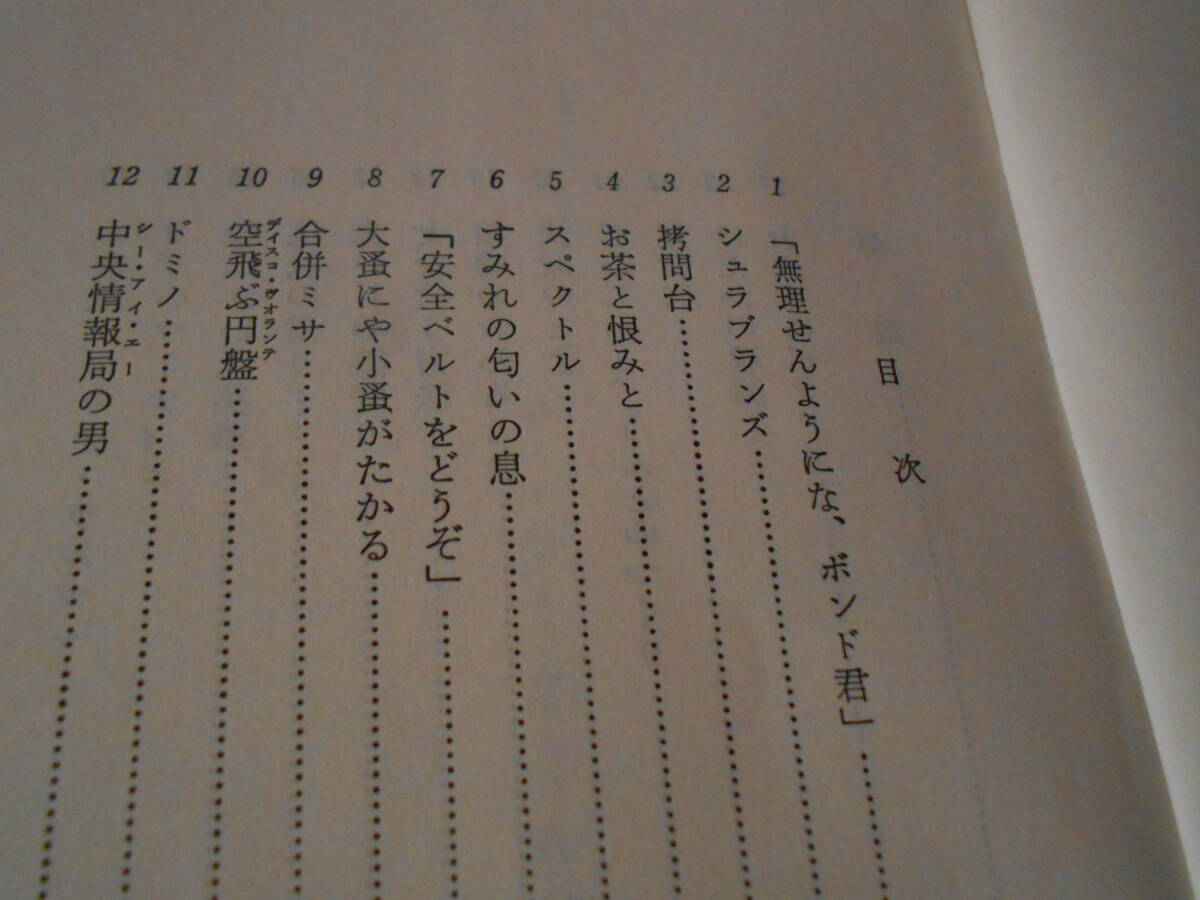 目次
1 「無理せんようにな、ボンド君」
2 シュラブランズ
3 拷問台
4 お茶と恨みと
5 スペクトル
6 すみれの匂いの息
7 「安全ベルトをどうぞ」
8 大蚤にや小蚤がたかる
9 合併ミサ
ディスコ・ヴオランテ
10 空飛ぶ円盤
11 ドミノ
シー・アイ・エー
12 中央情報局の男